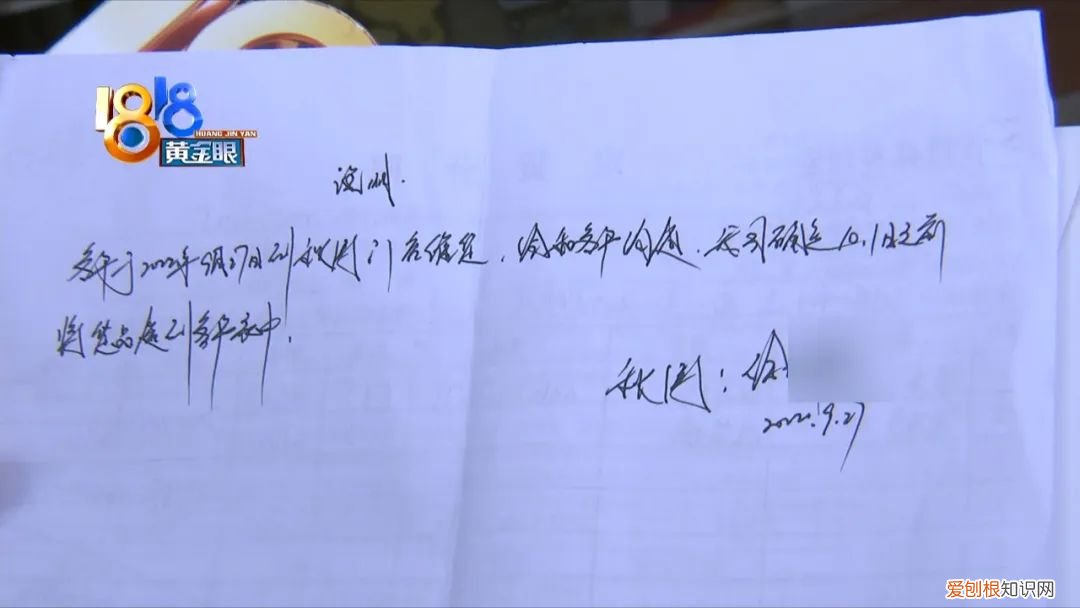 1818
HUANG JIN YAN
黄金眼
说明.
客户于2022年9月27日到秋周门店维权，徐和客户沟通，公司确定10.1日之前
将货品送到客户家中.
秋周：徐
2022.9.27
爱刨根知识网